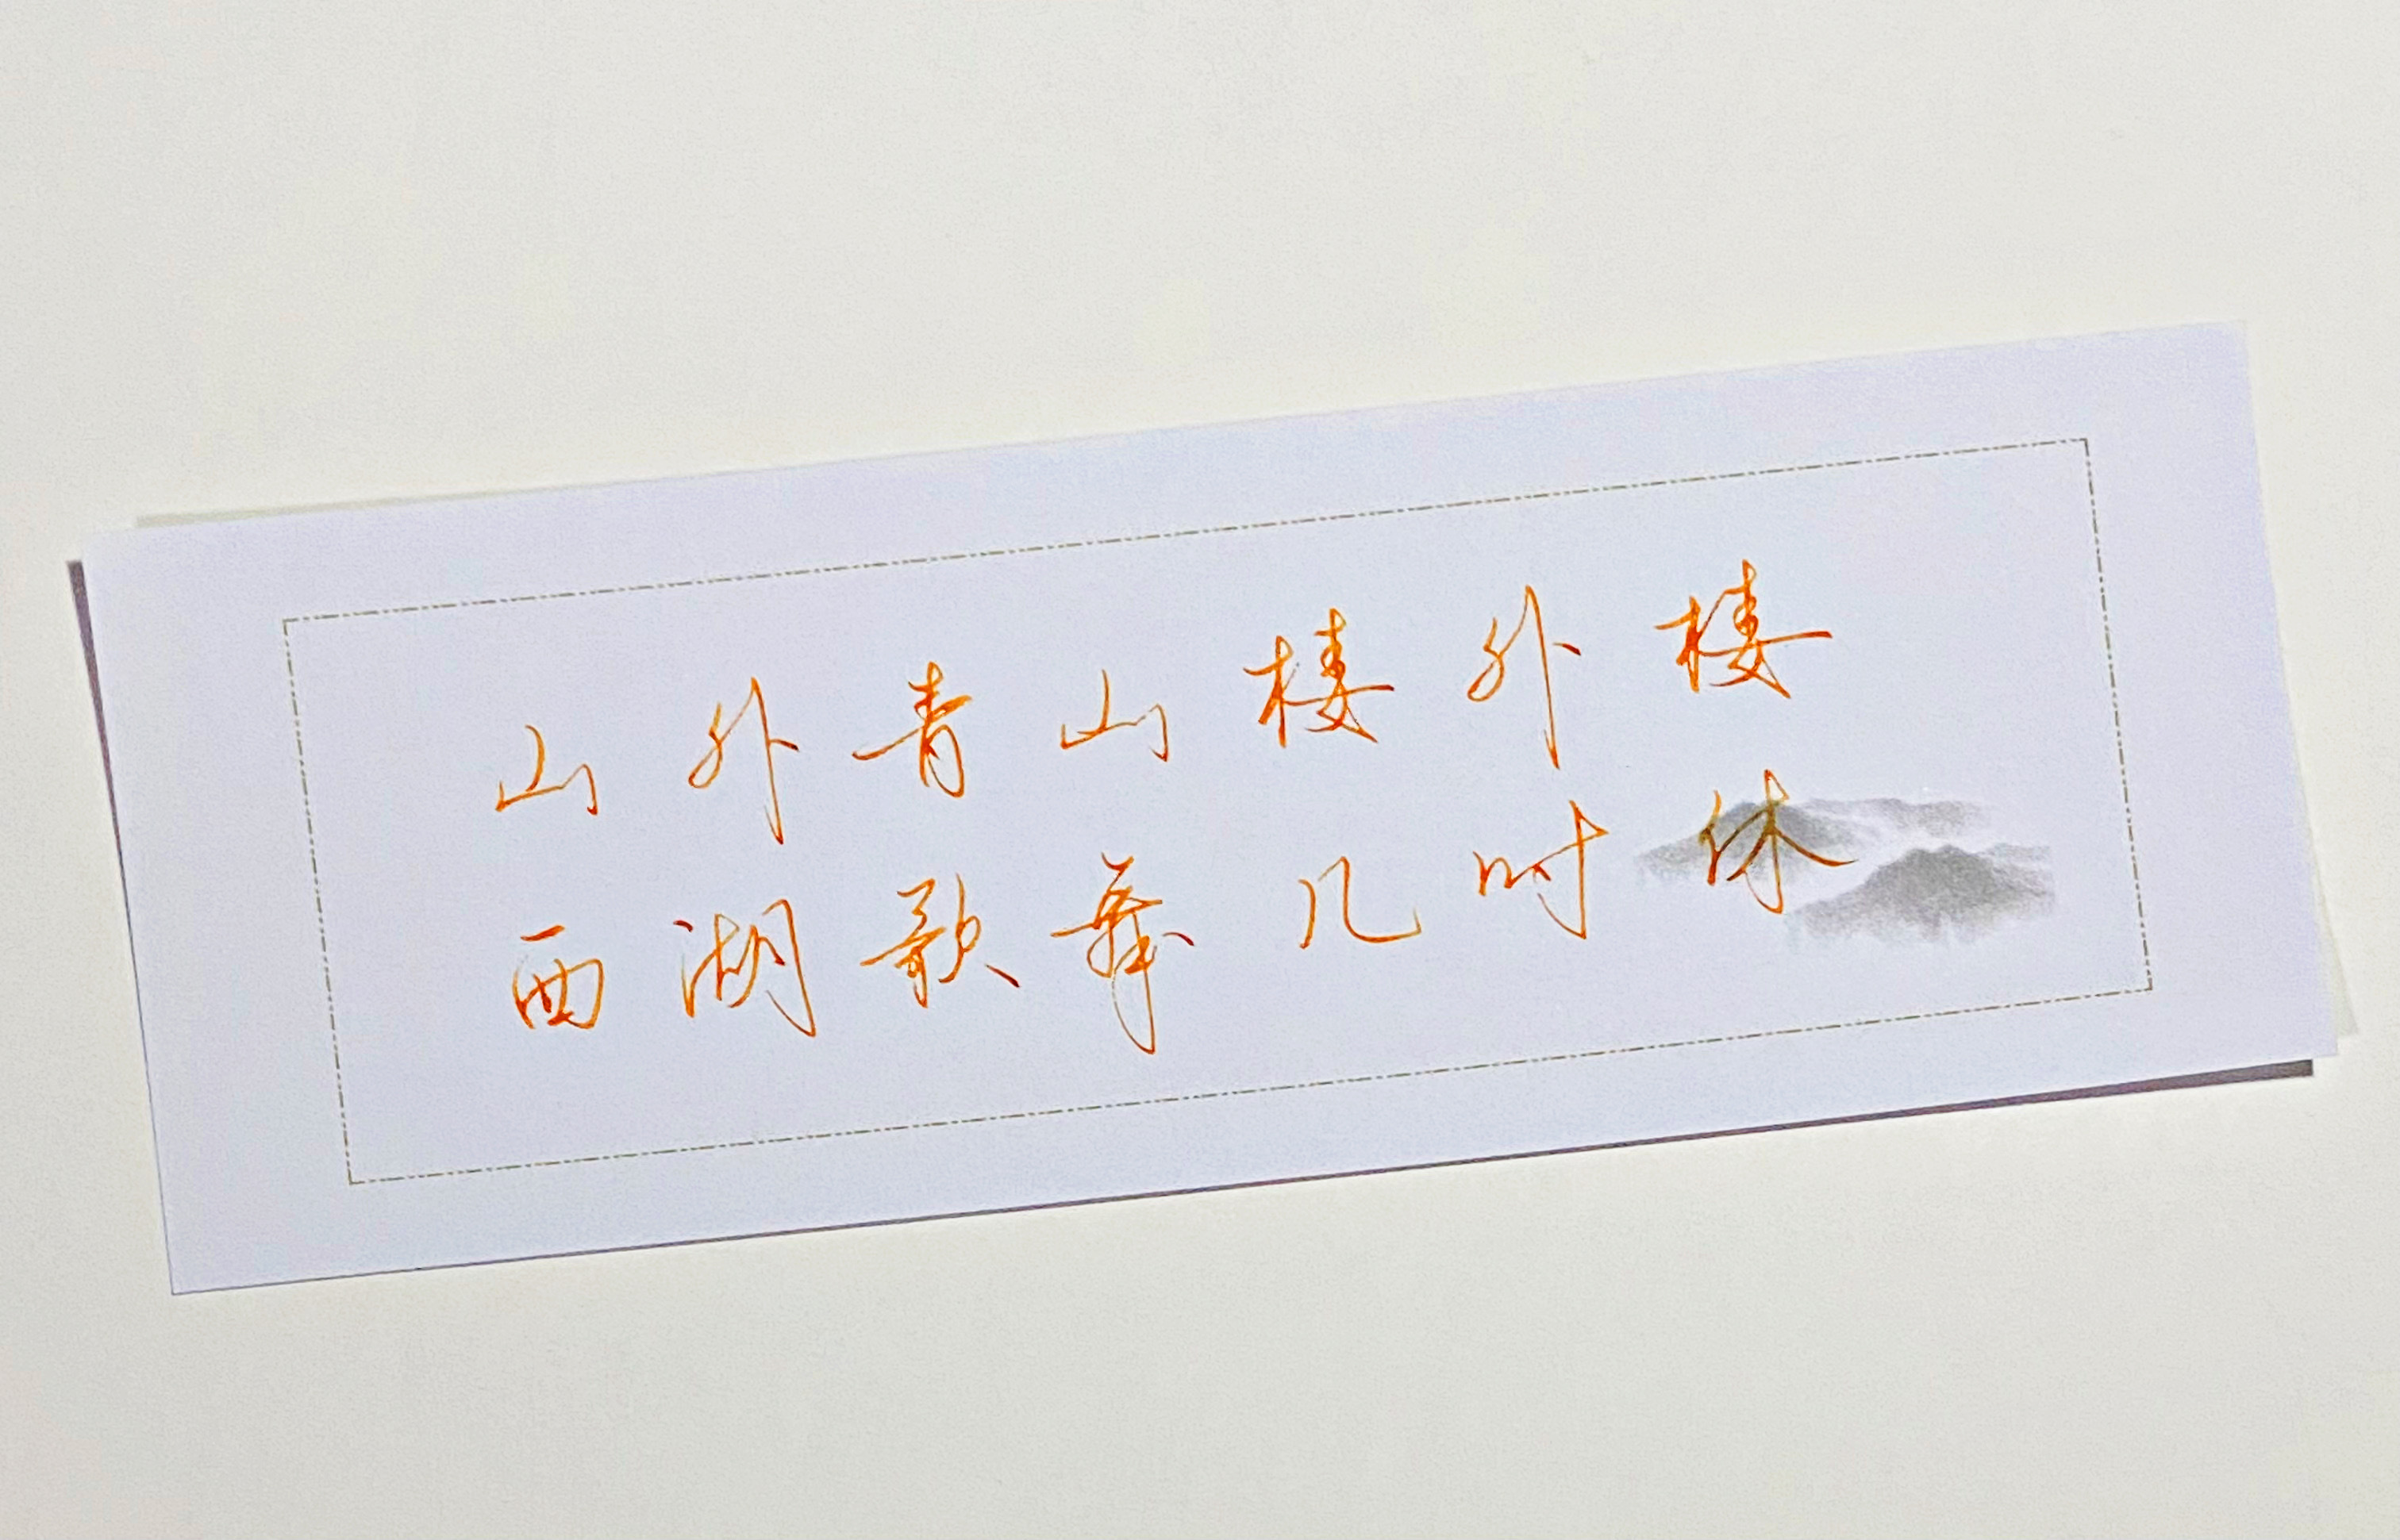 山外青山楼外楼
西湖歌舞几时休